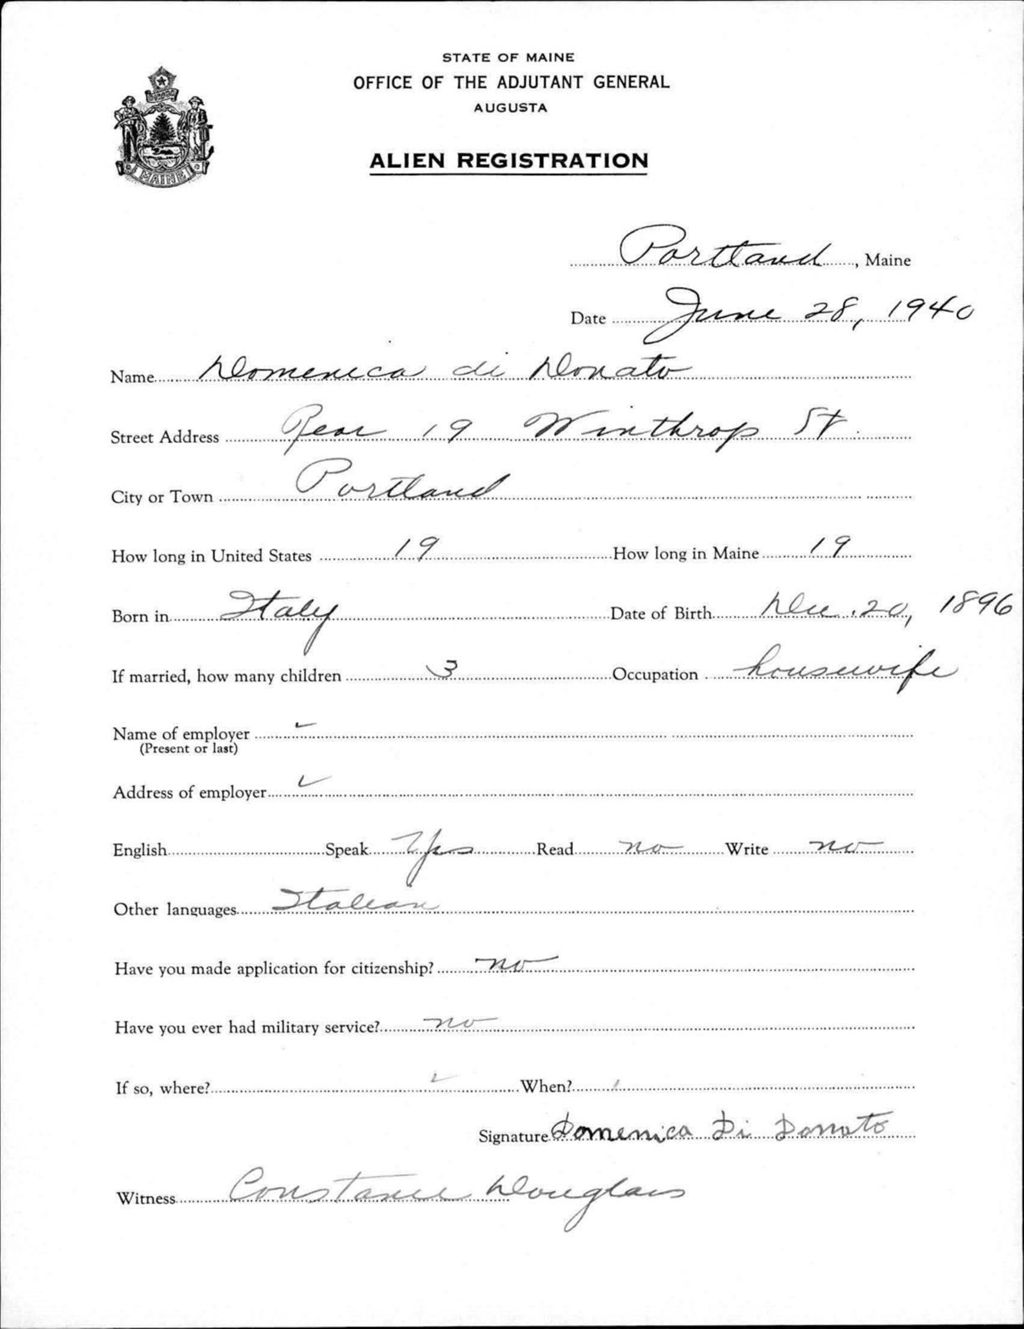 STATE OF MAINE
OFFICE OF THE ADJUTANT GENERAL
AUGUSTA
ALIEN REGISTRATION
MAINE
Portland, Maine
Date June 28, 1940
Name Domenica di Donato
Street Address Rear 19 Winthrop St.
City or Town Portland
How long in United States 19 How long in Maine 19
Born in Italy Date of Birth Dec. 20, 1896
If married, how many children 3 Occupation housewife
Name of employer
(Present or last)
Address of employer
English Speak Yes Read no Write no
Other languages Italian
Have you made application for citizenship? no
Have you ever had military service? no
If so, where? When?
Signature Domenica Di Donato
Witness Constance Douglass